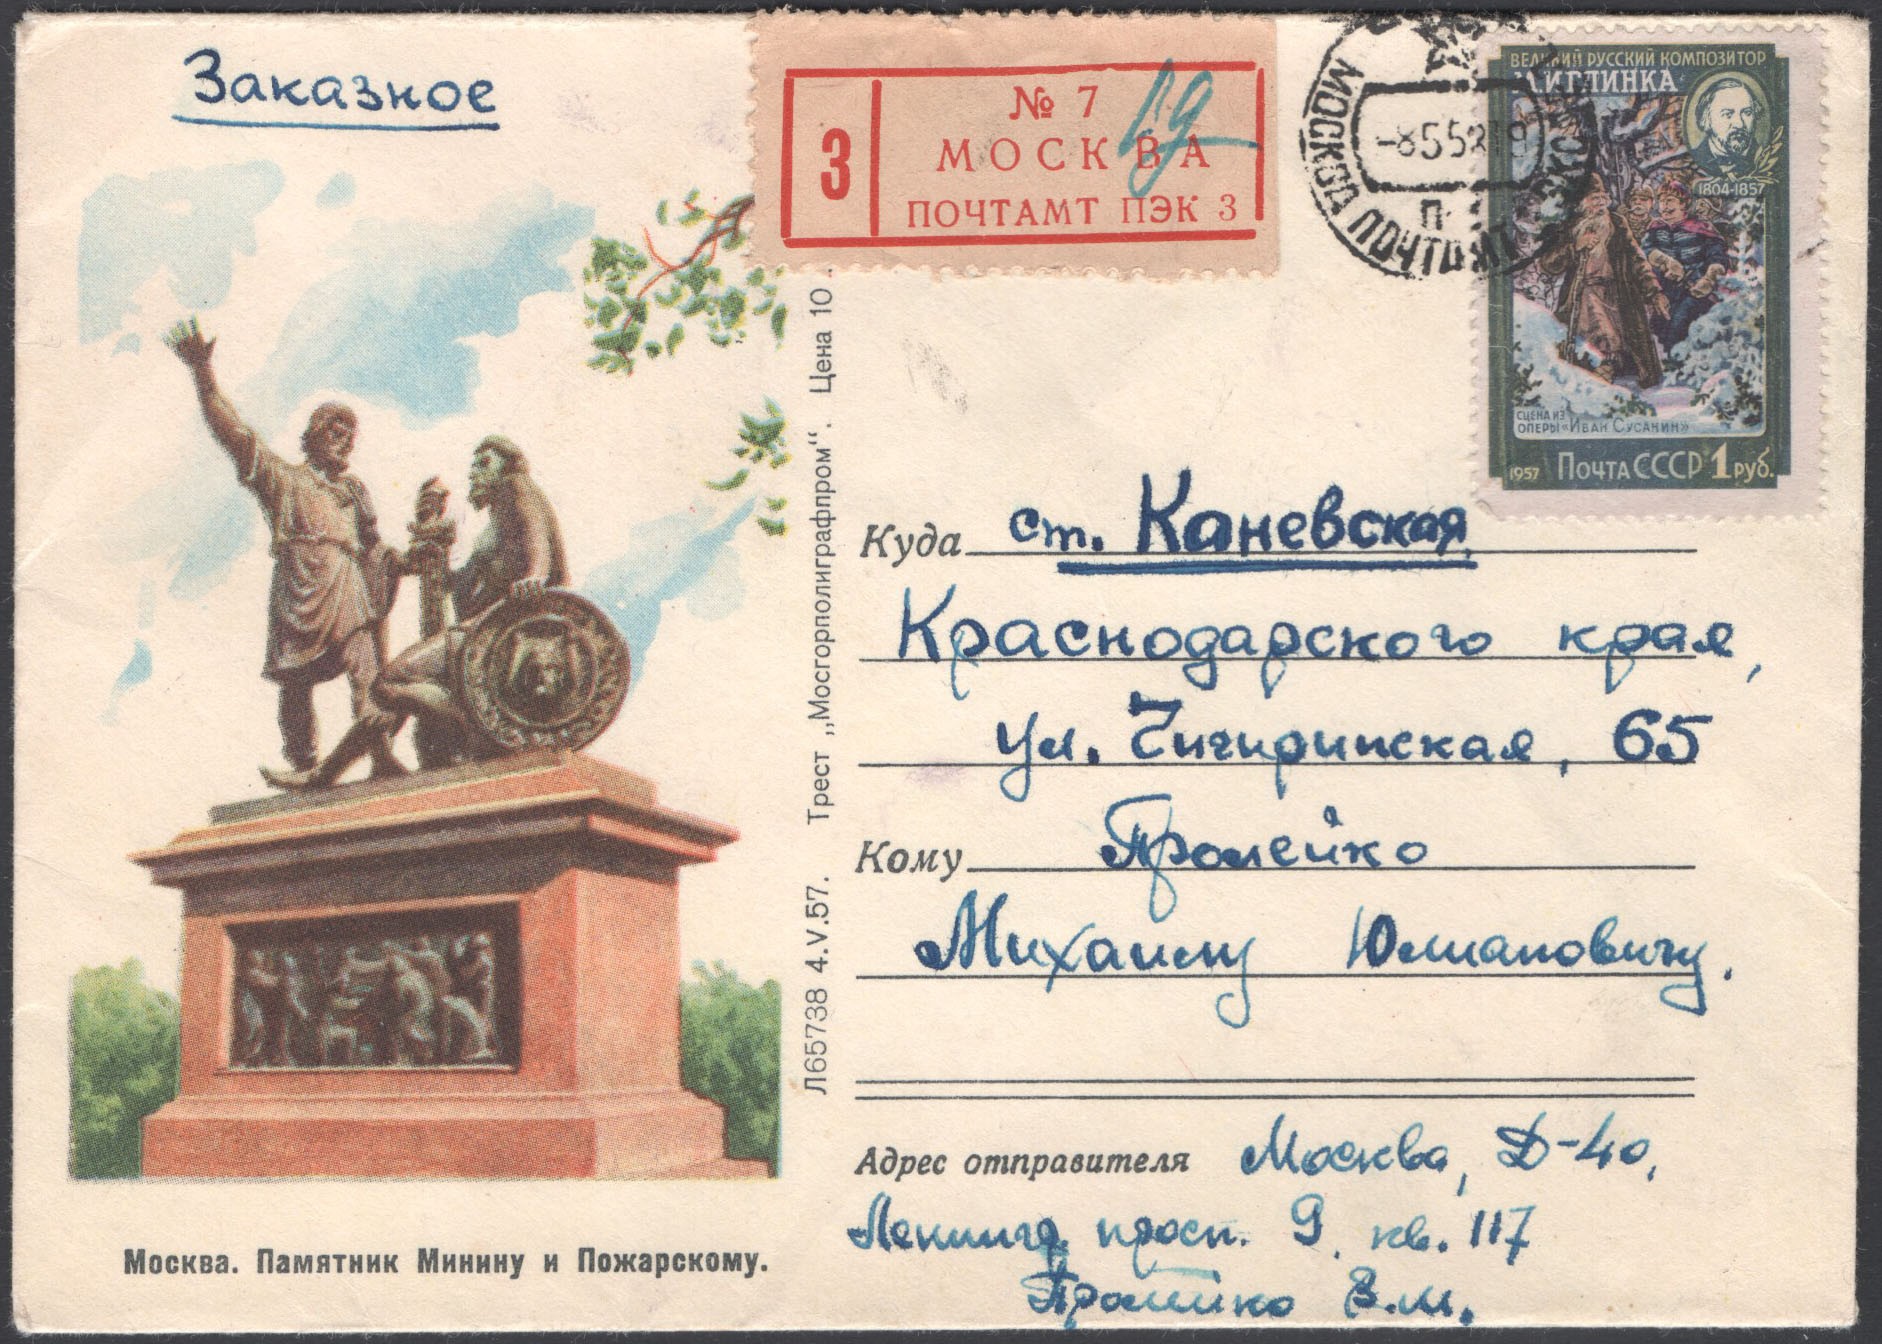 Заказное
3
№ 7
МОСКВА
ПОЧТАМТ ПЭК 3
МОСКВА ПОЧТАМТ
-8558
П
ВЕЛИКИЙ РУССКИЙ КОМПОЗИТОР
М.И.ГЛИНКА
1804-1857
СЦЕНА ИЗ
ОПЕРЫ «ИВАН СУСАНИН»
1957 ПОЧТА СССР 1 РУБ.
Куда ст. Каневская,
Краснодарского края,
ул. Чигиринская, 65
Кому Пролейко
Михаилу Юлиановичу.
Адрес отправителя Москва, Д-40,
Ленингр. просп. 9, кв. 117
Пролейко В.М.
Л65738 4.V.57. Трест „Мосгорполиграфпром“. Цена 10
Москва. Памятник Минину и Пожарскому.